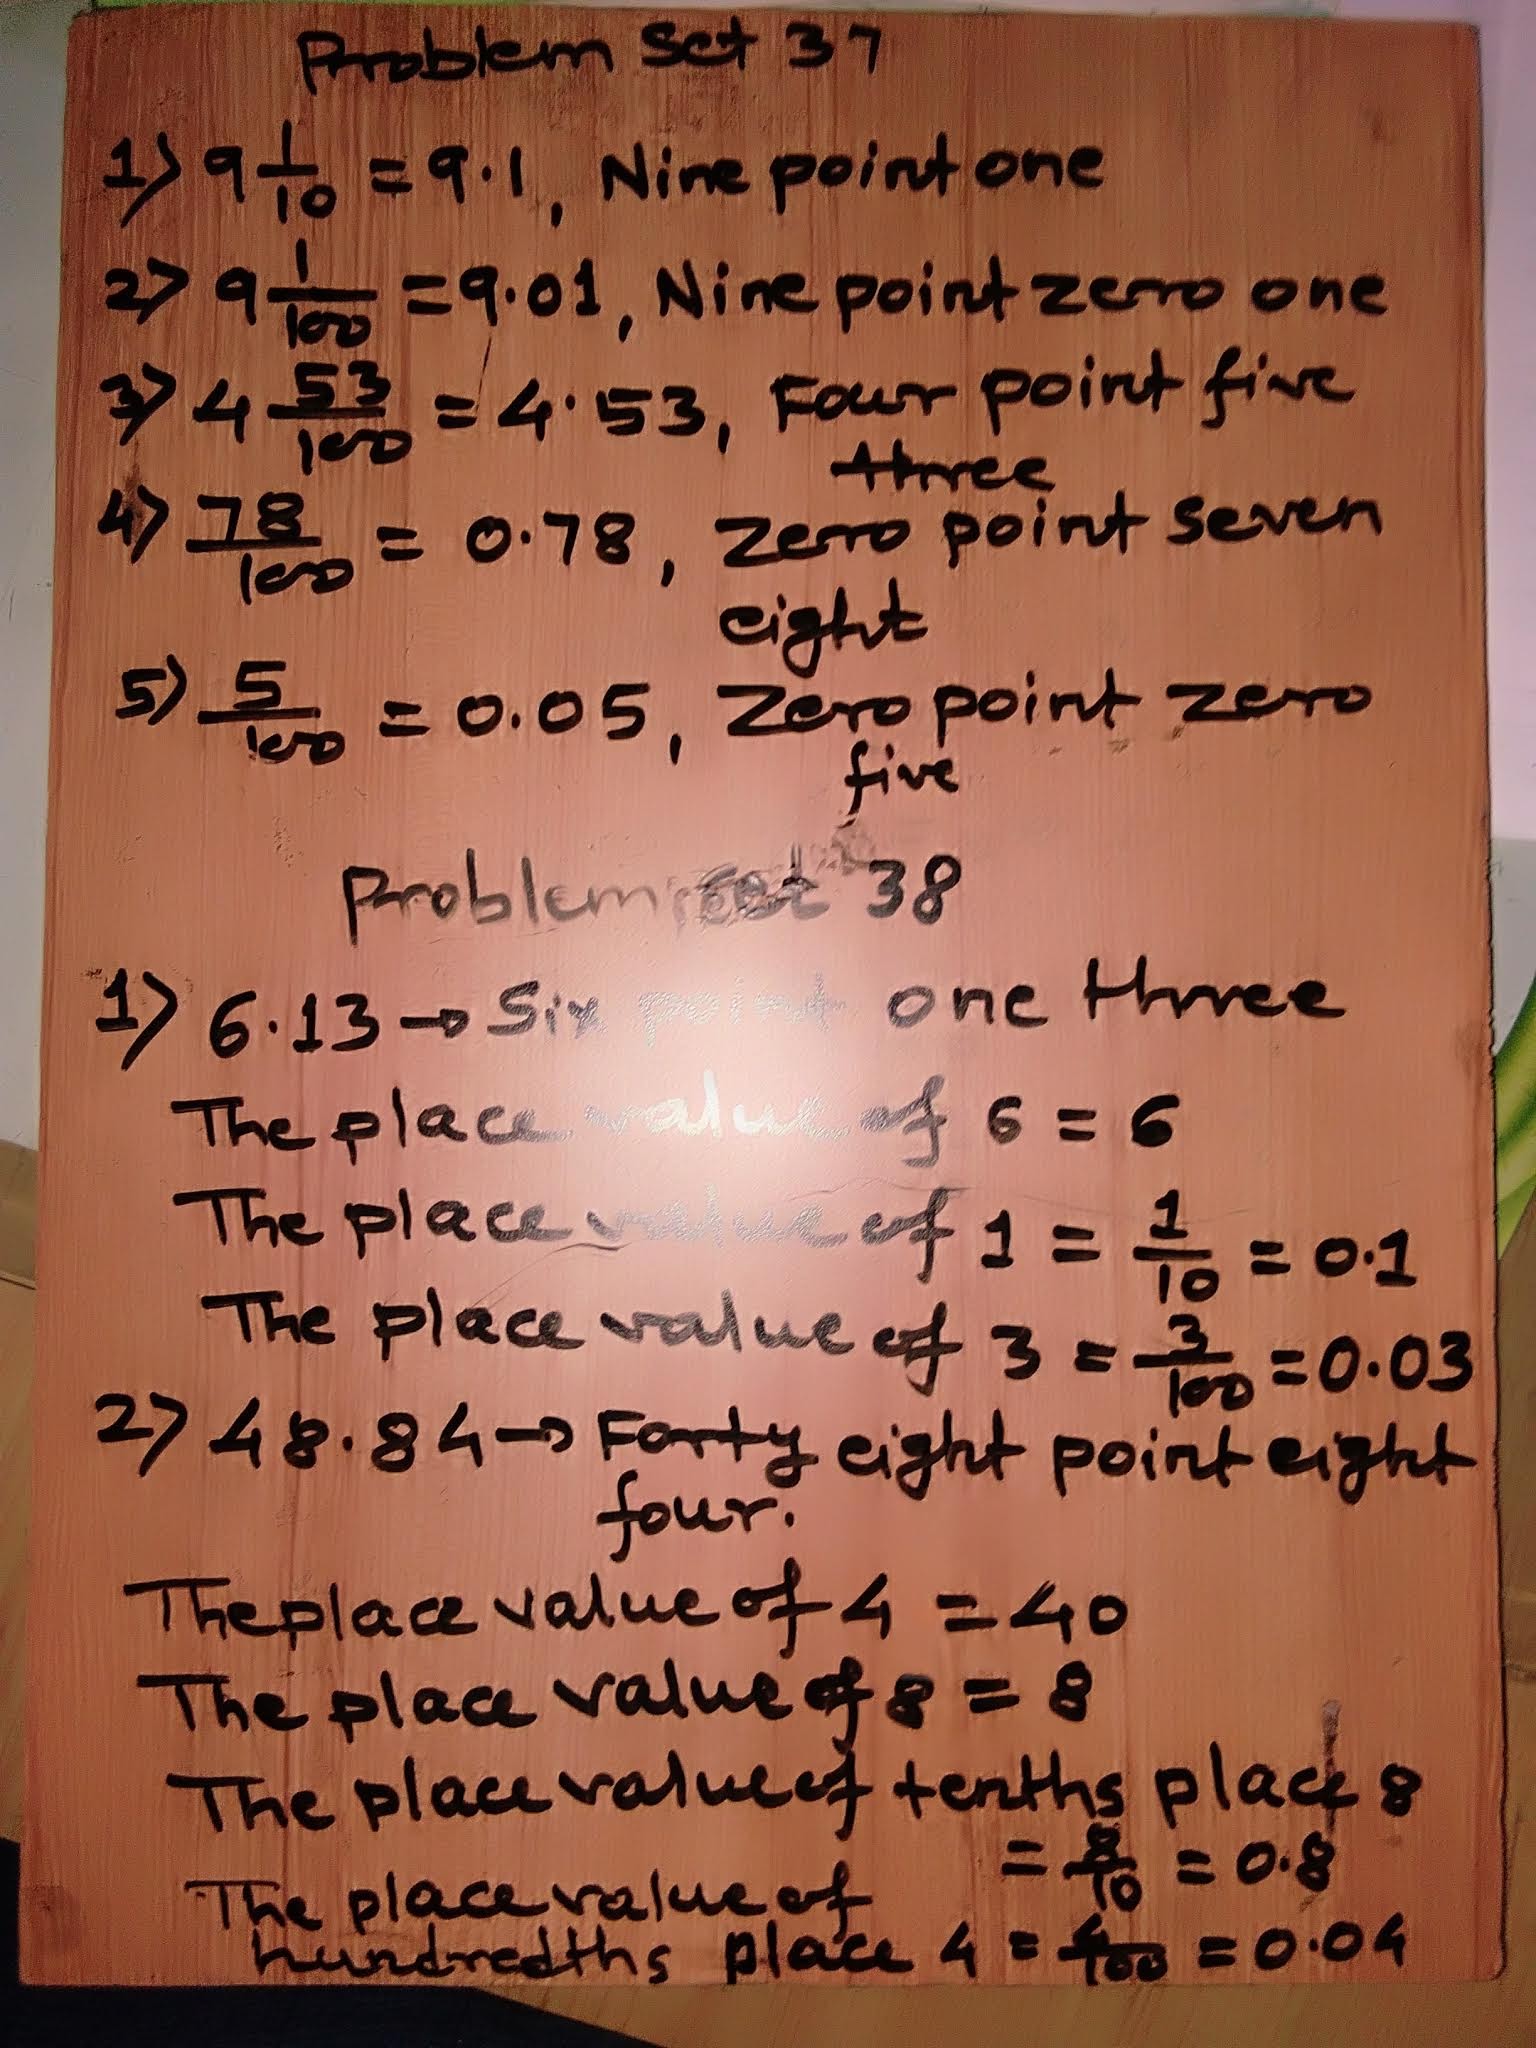 Problem Set 37
1) 9 1/10 = 9.1, Nine point one
2) 9 1/100 = 9.01, Nine point zero one
3) 4 53/100 = 4.53, Four point five
three
4) 78/100 = 0.78, Zero point seven
eight
5) 5/100 = 0.05, Zero point zero
five
Problem set 38
1) 6.13 → Six point one three
The place value of 6 = 6
The place value of 1 = 1/10 = 0.1
The place value of 3 = 3/100 = 0.03
2) 48.84 → Forty eight point eight
four.
The place value of 4 = 40
The place value of 8 = 8
The place value of tenths place 8
= 8/10 = 0.8
The place value of
hundredths place 4 = 4/100 = 0.04